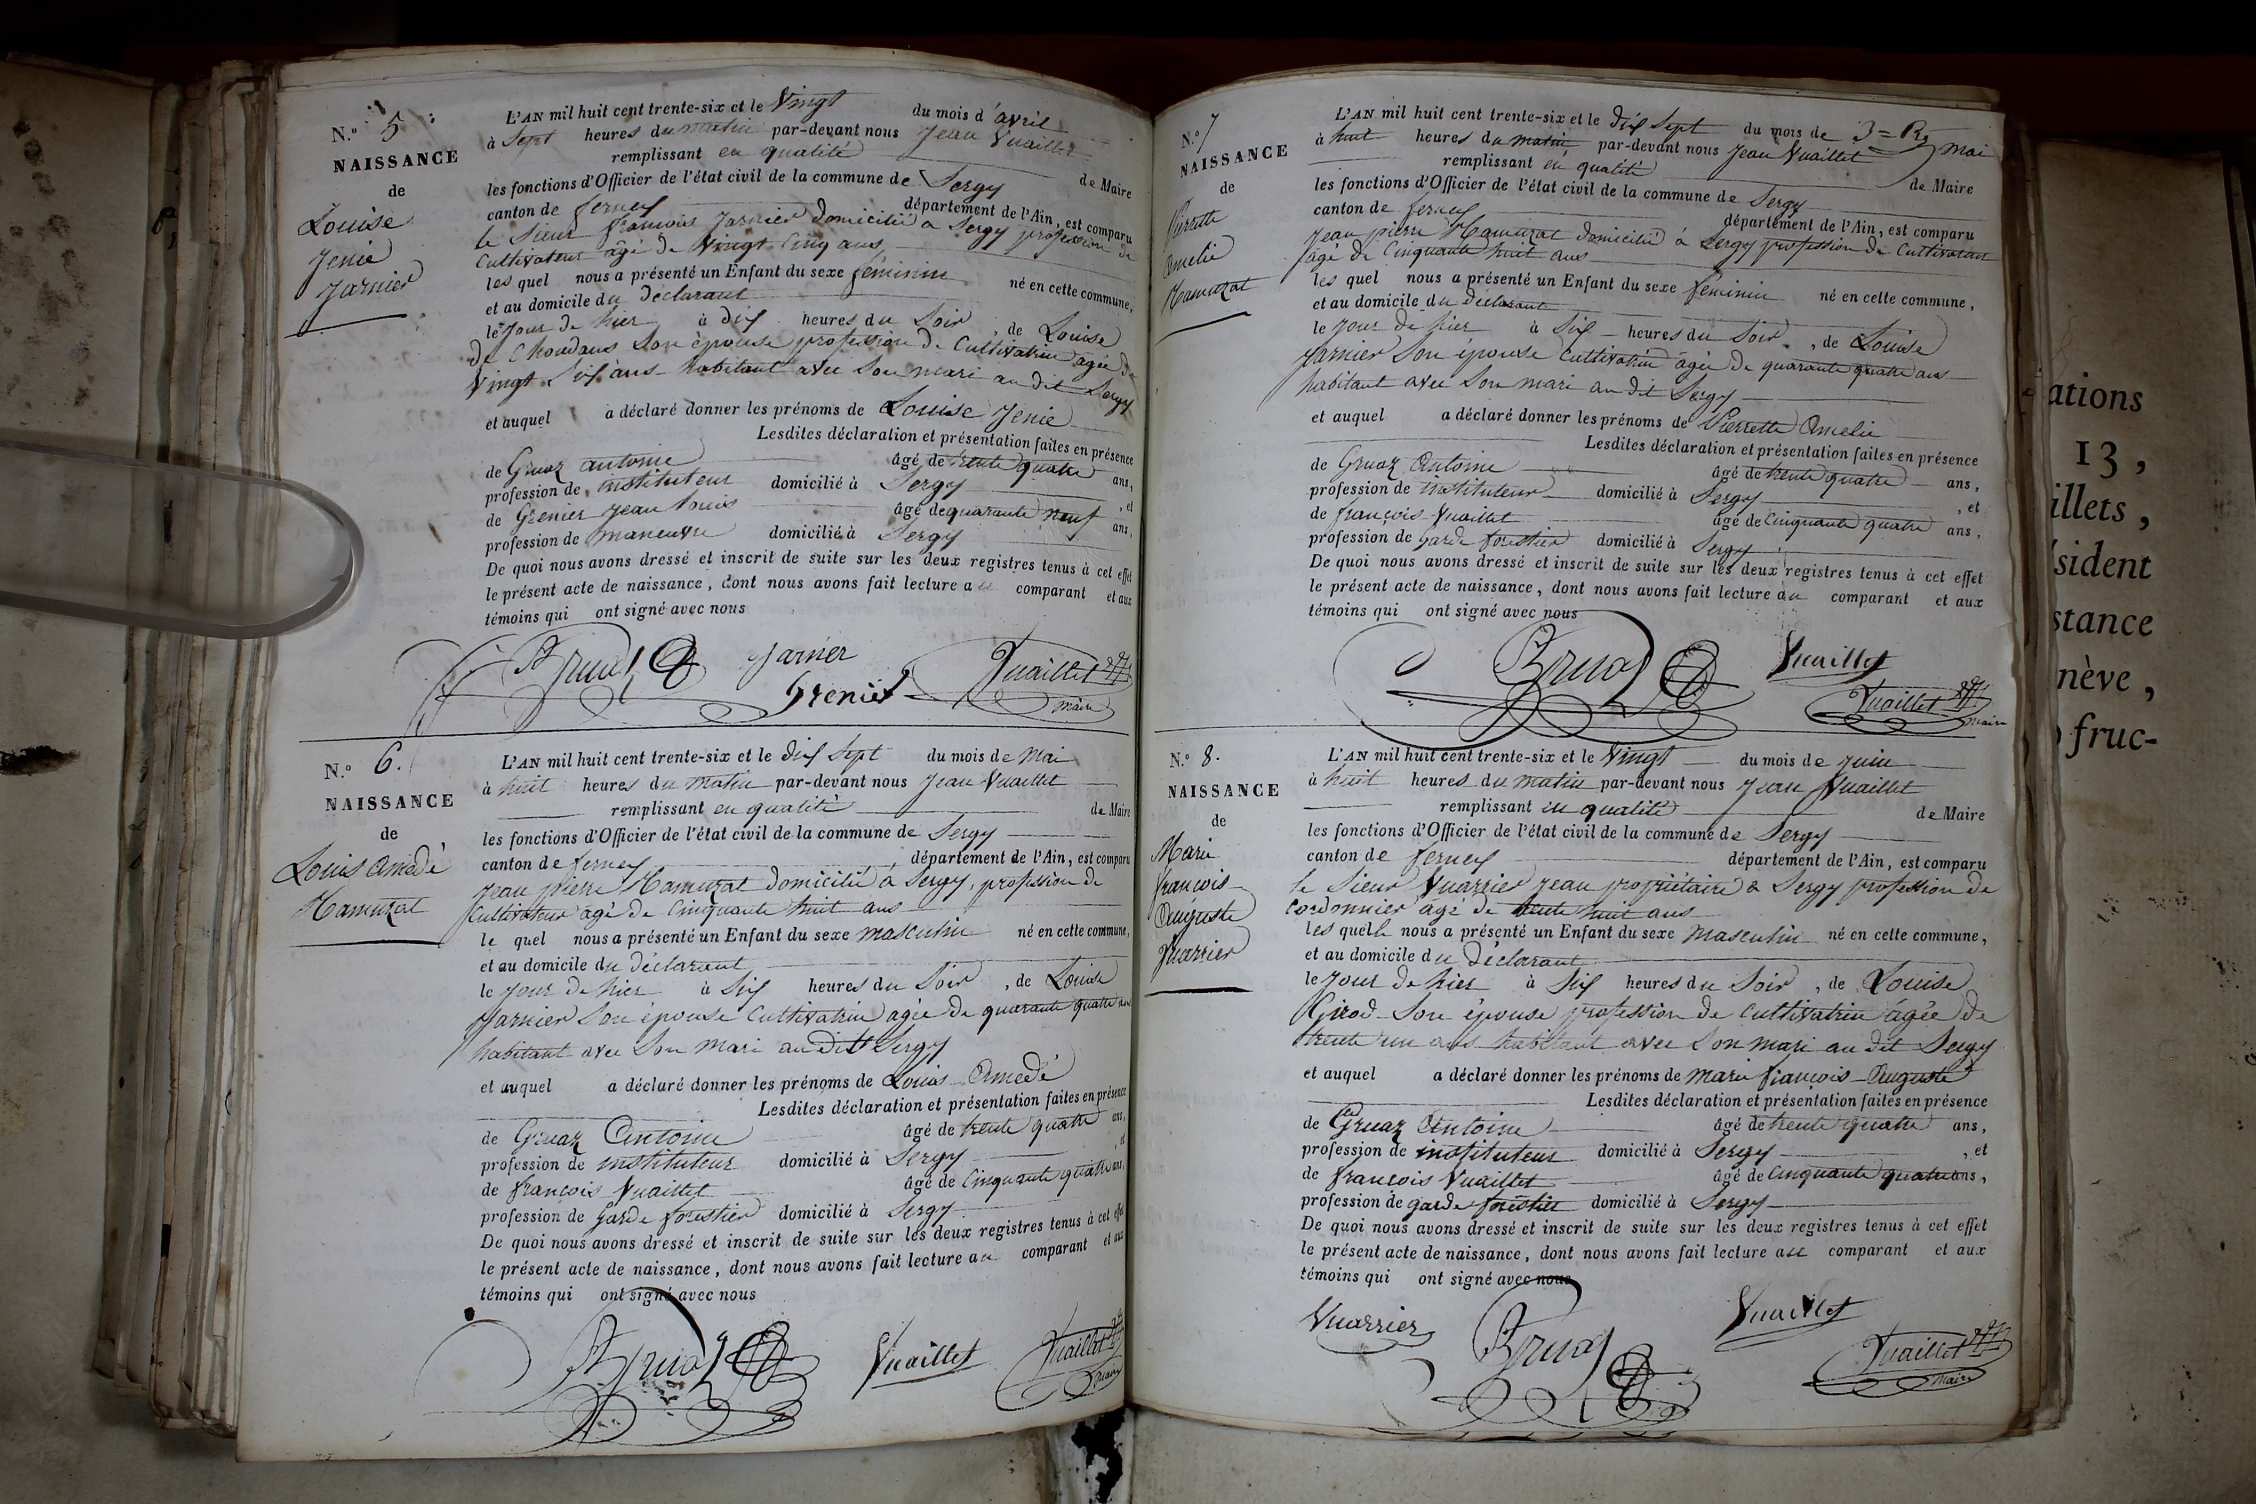 N.º 5
NAISSANCE
de
Louise
Jenie
Jarnier
L'AN mil huit cent trente-six et le Vingt du mois d'avril
à Sept heures du matin par-devant nous Jean Vuaillet
remplissant en qualité de Maire
les fonctions d'Officier de l'état civil de la commune de Sergy
canton de ferney département de l'Ain, est comparu
le Sieur françois Jarnier domicilié à Sergy profession de
Cultivateur âgé de Vingt Cinq ans
les quel nous a présenté un Enfant du sexe féminin né en cette commune,
et au domicile du déclarant
le jour de hier à dix heures du Soir, de Louise
de Choudans Son épouse profession de Cultivatrice agée de
Vingt Six ans habitant avec Son mari au dit Sergy
et auquel a déclaré donner les prénoms de Louise Jenie
Lesdites déclaration et présentation faites en présence
de Gruaz antoine âgé de trente quatre ans,
profession de instituteur domicilié à Sergy, et
de Grenier Jean Louis âgé de quarante neuf ans,
profession de maneuvre domicilié à Sergy
De quoi nous avons dressé et inscrit de suite sur les deux registres tenus à cet effet
le présent acte de naissance, dont nous avons fait lecture au comparant et aux
témoins qui ont signé avec nous
Gruaz Jarnier Vuaillet
Grenier maire
N.º 6.
NAISSANCE
de
Louis Amédé
Hamuzat
L'AN mil huit cent trente-six et le dix Sept du mois de Mai
à huit heures du matin par-devant nous Jean Vuaillet
remplissant en qualité de Maire
les fonctions d'Officier de l'état civil de la commune de Sergy
canton de ferney département de l'Ain, est comparu
Jean pierre Hamuzat domicilié à Sergy, profession de
Cultivateur âgé de Cinquante huit ans
le quel nous a présenté un Enfant du sexe masculin né en cette commune,
et au domicile du déclarant
le jour de hier à Six heures du Soir, de Louise
Jarnier Son épouse Cultivatrice agée de quarante quatre ans
habitant avec Son mari au dit Sergy
et auquel a déclaré donner les prénoms de Louis Amédé
Lesdites déclaration et présentation faites en présence
de Gruaz Antoine âgé de trente quatre ans,
profession de instituteur domicilié à Sergy, et
de françois Vuaillet âgé de Cinquante quatre ans,
profession de Garde forestier domicilié à Sergy
De quoi nous avons dressé et inscrit de suite sur les deux registres tenus à cet effet
le présent acte de naissance, dont nous avons fait lecture au comparant et aux
témoins qui ont signé avec nous
Gruaz Vuaillet Vuaillet
maire
N.º 7
NAISSANCE
de
Pierrette
Amelie
Hamuzat
L'AN mil huit cent trente-six et le dix Sept du mois de mai
à huit heures du matin par-devant nous Jean Vuaillet
remplissant en qualité de Maire
les fonctions d'Officier de l'état civil de la commune de Sergy
canton de ferney département de l'Ain, est comparu
Jean pierre Hamuzat domicilié à Sergy profession de Cultivateur
âgé de Cinquante huit ans
les quel nous a présenté un Enfant du sexe féminin né en cette commune,
et au domicile du déclarant
le jour de hier à Six heures du Soir, de Louise
Jarnier Son épouse Cultivatrice âgée de quarante quatre ans
habitant avec Son mari au dit Sergy
et auquel a déclaré donner les prénoms de Pierrette Amelie
Lesdites déclaration et présentation faites en présence
de Gruaz Antoine âgé de trente quatre ans,
profession de instituteur domicilié à Sergy, et
de françois Vuaillet âgé de Cinquante quatre ans,
profession de Garde forestier domicilié à Sergy
De quoi nous avons dressé et inscrit de suite sur les deux registres tenus à cet effet
le présent acte de naissance, dont nous avons fait lecture au comparant et aux
témoins qui ont signé avec nous
Gruaz Vuaillet
Vuaillet
maire
N.º 8.
NAISSANCE
de
Marie
françois
Auguste
Vuarrier
L'AN mil huit cent trente-six et le Vingt du mois de Juin
à huit heures du matin par-devant nous Jean Vuaillet
remplissant en qualité de Maire
les fonctions d'Officier de l'état civil de la commune de Sergy
canton de ferney département de l'Ain, est comparu
le Sieur Vuarrier Jean propriétaire à Sergy profession de
Cordonnier âgé de trente huit ans
les quel nous a présenté un Enfant du sexe Masculin né en cette commune,
et au domicile du déclarant
le jour de hier à Six heures du Soir, de Louise
Girod Son épouse profession de Cultivatrice âgée de
trente un ans habitant avec Son mari au dit Sergy
et auquel a déclaré donner les prénoms de marie françois Auguste
Lesdites déclaration et présentation faites en présence
de Gruaz Antoine âgé de trente quatre ans,
profession de instituteur domicilié à Sergy, et
de françois Vuaillet âgé de Cinquante quatre ans,
profession de garde forestier domicilié à Sergy
De quoi nous avons dressé et inscrit de suite sur les deux registres tenus à cet effet
le présent acte de naissance, dont nous avons fait lecture au comparant et aux
témoins qui ont signé avec nous
Vuarrier Gruaz Vuaillet
Vuaillet
maire
ations
13,
illets,
sident
stance
nève,
fruc-